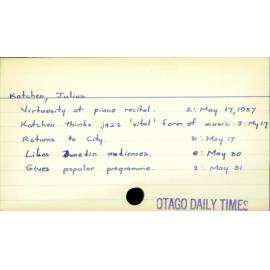 Katchen, Julius
Virtuosity at piano recital. 2: May 17, 1957
Katchen thinks jazz 'vital' form of music. 5: My 17
Returns to City. 8: May 17
Likes Dunedin audiences. 8: May 30
Gives popular programme. 2: May 31
OTAGO DAILY TIMES